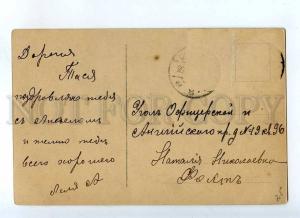 Дорогая
Тася
поздравляю тебя
съ Ангеломъ
и желаю тебѣ
всего хорошаго
Уголъ Офицерской и
Английскаго пр. д № 19 кв. 36
Наталія Николаевна